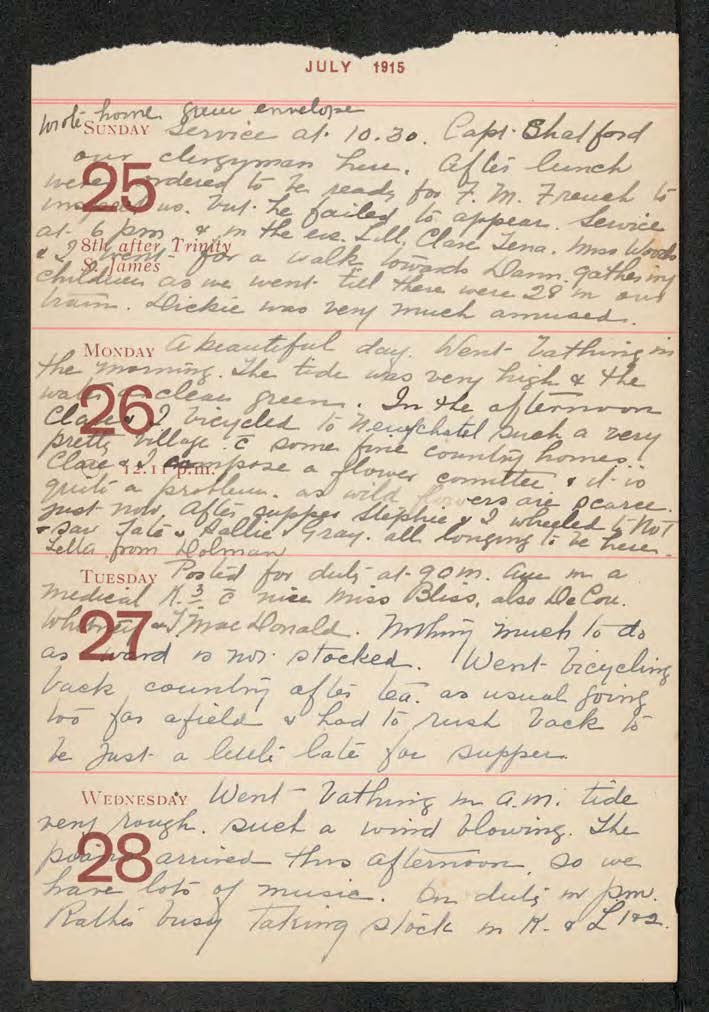 JULY 1915
Wrote home green envelope
SUNDAY Service at 10.30. Capt. Shatford
our clergyman here. After lunch
25 were ordered to be ready for F. M. French to
us. but he failed to appear. Service
at 6 pm & in the eve. Lill, Clare Lena. Miss Woods
8th after Trinity
& I went for a walk towards Dann. gathering
S. James
children as we went till there were 28 in our
train. Dickie was very much amused.
MONDAY A beautiful day. Went bathing in
the morning. The tide was very high & the
water clear green. In the afternoon
26 Clare & I bicycled to Neufchatel such a very
pretty village. c̄ some fine country homes.
12.11 p.m.
Clare & I compose a flower comittee & it is
quite a problem. as wild flowers are scarce
just now. After supper Stephie & I wheeled to No 1
& saw Tate & Hallie & Gray. all longing to be here.
Letter from Dolman
TUESDAY Posted for duty at 9 a m. Am in a
medical K. 3 c̄ nice Miss Bliss, also De Cou.
27 Whitney & T MacDonald. Nothing much to do
as ward is not stocked. Went bicycling
back country after tea. as usual going
too far afield & had to rush back to
be just a little late for supper.
WEDNESDAY Went bathing in a.m. tide
very rough. such a wind blowing. The
28 piano arrived this afternoon so we
have lots of music. On duty in pm.
Rather busy taking stock in K. & L 1 & 2.